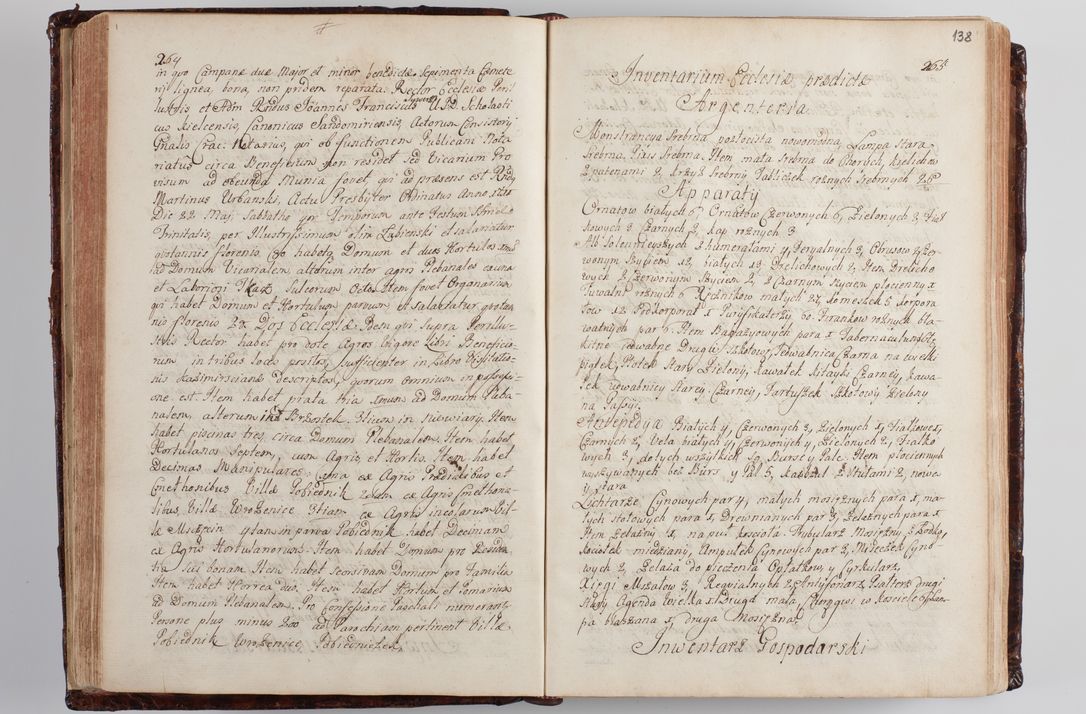 264
in quo Campanæ duæ Major et minor benedictæ Sepimenta Cæmete
rij lignea, bona, non pridem reparata. Rector Ecclesiæ Peril
lustris et Adm Rndus Joannes Franciscus
cus Kielcensis, Canonicus Sandomiriensis, Actorum Consistorij
Gnalis Crac: Notarius, qui ob functionem Publicam Nota
riatus circa Beneficium non residet sed Vicarium Pro
visum ad obeunda Munia fovet qui ad præsens est Rndg
Martinus Urbanski, Actul Presbyter Ordinatus Anno
Die 22 Maij Sabbatho qr Temporum ante Festum SSmæ
Trinitatis, per Illustrissimum olim Łubienski et salariatur
quotannis florenis, habetq Domum et duos Hortulos unu
ad Domum Vicarialem, alterum inter agros Plebanales
et Laborioj Octo. Item fovet Organarium
qui habet Domum et Hortulum parvum, et Salariatur quotan
nis florenis 22 Dos Ecclesiæ Idem qui supra Perillu
stris Rector habet pro dote Agros vigore libri Beneficio
rum in tribus locis positos, sufficienter in Libro Visitatio
nis Kazimirscianæ descriptos, quorum omnium in possessi
one est. Item habet prata tria unum ad Domum Pleba
nalem, alterum Brzostek 3tium in Niwiarij. Item
habet piscinas tres, circa Domum Plebanalem. Item habet
Hortulanos Septem, cum Agris et Hortis. Item habet
Decimas Manipulares, 1ma ex Agris Prædialibus et
Cmethonibus Villæ Pobiednik 2dam ex Agris Cmethona
libus, Villæ Wrozenice 3tiam ex Agris incolarum Vil
læ in parva Pobiednik habet Decimam
ex Agris Hortulanorum. Item habet Domum pro Residen
tia sui bonam. Item habet seorsivam Domum pro Familia
Item habet Horrea duo, Item habet Hortum et Pomarium
ad Domum Plebanalem. Pro Confessione Paschali numerant
Personæ plus minus 200 ad Parochiam pertinent Villæ
Pobiednik Wrozenice, Pobiedniczek,
138
265
Inventarium Ecclesiæ prædictæ
Argenteria.
Monstrancya Srebrna pozłocista nowozrobiona, Lampa Stara
Srebrna, Pixis Srebrna. Item mała Srebrna do Chorych, Kielichow
2 patenami 2, Krzyż Srebrny Tabliczek roznych Srebrnych 25
Apparaty
Ornatow białych 6 Ornatow Czerwonych 6, Zielonych 2, Fiał
kowych 2 Czarnych 2, Kap roznych 3
Alb Solennieyszych z humerałami 4, Feryalnych 3, Obrusow z czer
wonym szyciem 12, białych 13 Drelichowych 2, Item Drelicho
wych z Czerwonym szyciem 2, z Czarnym szyciem płocienny 1
Tuwalni roznych 6 Ręcznikow małych 27 Komeszek 5 Korpora
łow 12 Prokorporał 1 Puryfikaterzy 60. Firankow roznych bła
watnych par 6. Item Bagażyowych para 1
kitne jedwabne Drugie szkotowe, Jedwabnica Czarna na wielki
piątek Płotek Stary Zielony, Kawałek kitayki Czarney, kawa
łek jedwabnicy Starey Czarney, Fartuszek szkotowy zielony
na Passyi.
Antepedya Białych 4, Czerwonych 3, Zielonych 1, Fiałkowe 1,
Czarnych 2, Vela białych 4, Czerwonych 4, Zielonych 2, Fiałko
wych 3, do tych wszytkich so Bursę y Palę. Item płociennych
wyszywanych bez Burs y Pal 5, z Stułami 2, nowa
y stara
Lichtarze Cynowych par 4, małych mosiężnych para 1, ma
łych stołowych para 1, Drewnianych par 3, Zelaznych para 1
Item Zelazny 1, na puł Kościoła Trybularz Mosiężny
Kociołek miedziany, Ampułek Cynowych par 2, Miseczek Cyno
wych 2, Zelaza do pieczenia Opłatkow, y Cyrkularz,
Xięgi Mszałow 3, Requialnych 2 Antyfonarz Psałterz drugi
stary Agenda Wielka 1. Druga mała, Choręgwi w Kosciele
pa blaszana 1, druga Mosiężna
Inwentarz Gospodarski